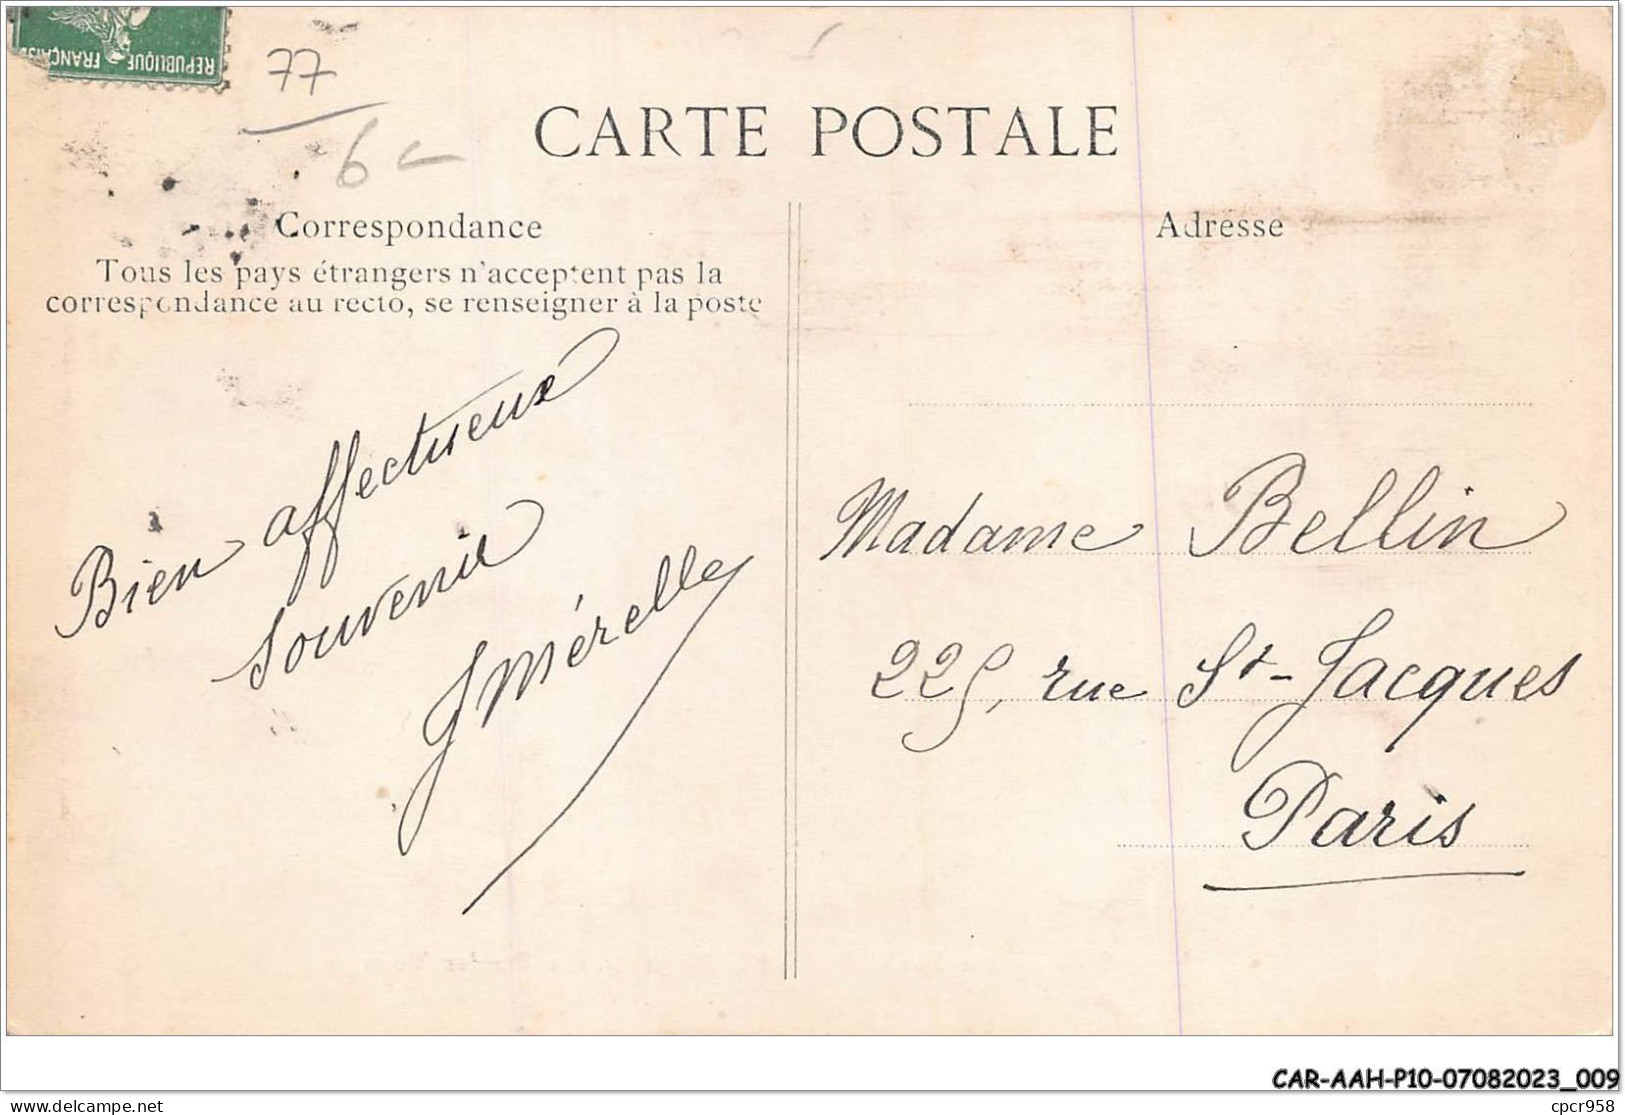 REPUBLIQUE FRANÇAISE
77
6
CARTE POSTALE
Correspondance
Tous les pays étrangers n'acceptent pas la
correspondance au recto, se renseigner à la poste
Bien affectueux
souvenir
J Mérelle
Adresse
Madame Bellin
225, rue St-Jacques
Paris
CAR-AAH-P10-07082023_009
delcampe.net
cpcr958